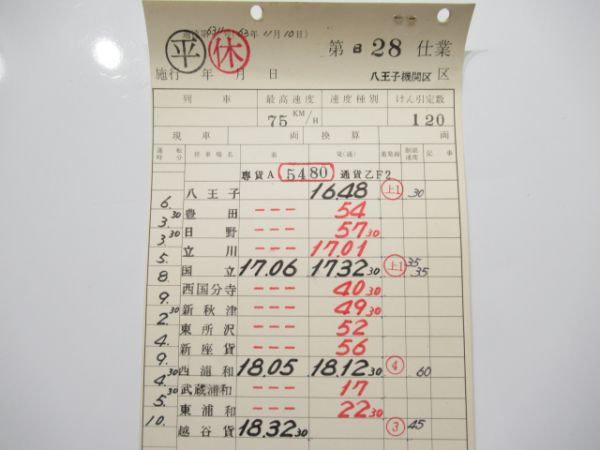 達第631号(63年11月10日)
平 休 第 B 28 仕業
施行 年 月 日 八王子機関区 区
列車 最高速度 速度種別 けん引定数
75 KM/H 120
現車 両 換算 両
運転時分 停車場名 着 発(通) 着発線 制限速度 記事
専貨A 5480 通貨乙F2
八王子 16.48 上1 30
6.
豊田 --- 54
3.30
日野 --- 57 30
3.30
立川 --- 17.01
5.
国立 17.06 17.32 30 上1 35 35
8.
西国分寺 --- 40 30
9.
新秋津 --- 49 30
2.30
東所沢 --- 52
4.
新座貨 --- 56
9.
西浦和 18.05 18.12 30 4 60
4.30
武蔵浦和 --- 17
5.30
東浦和 --- 22 30
10.
越谷貨 18.32 30 3 45